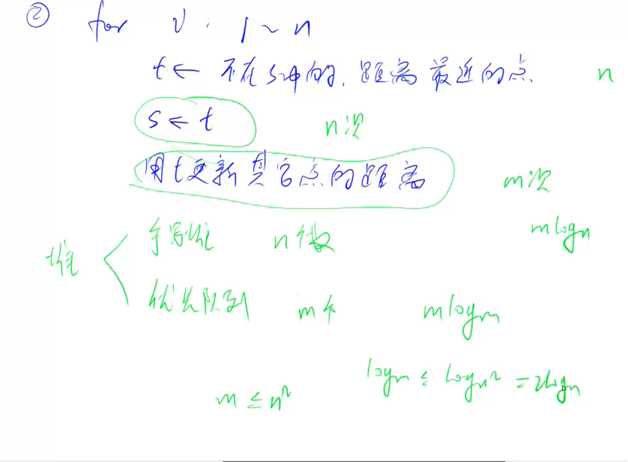 ② for i: 1~n
t ← 不在s中的, 距离最近的点. n
s ← t n次
用t更新其它点的距离 m次
堆 手写堆 n个数 mlogn
优先队列 m个 mlogm
m ≤ n² logm ≤ logn² = 2logn